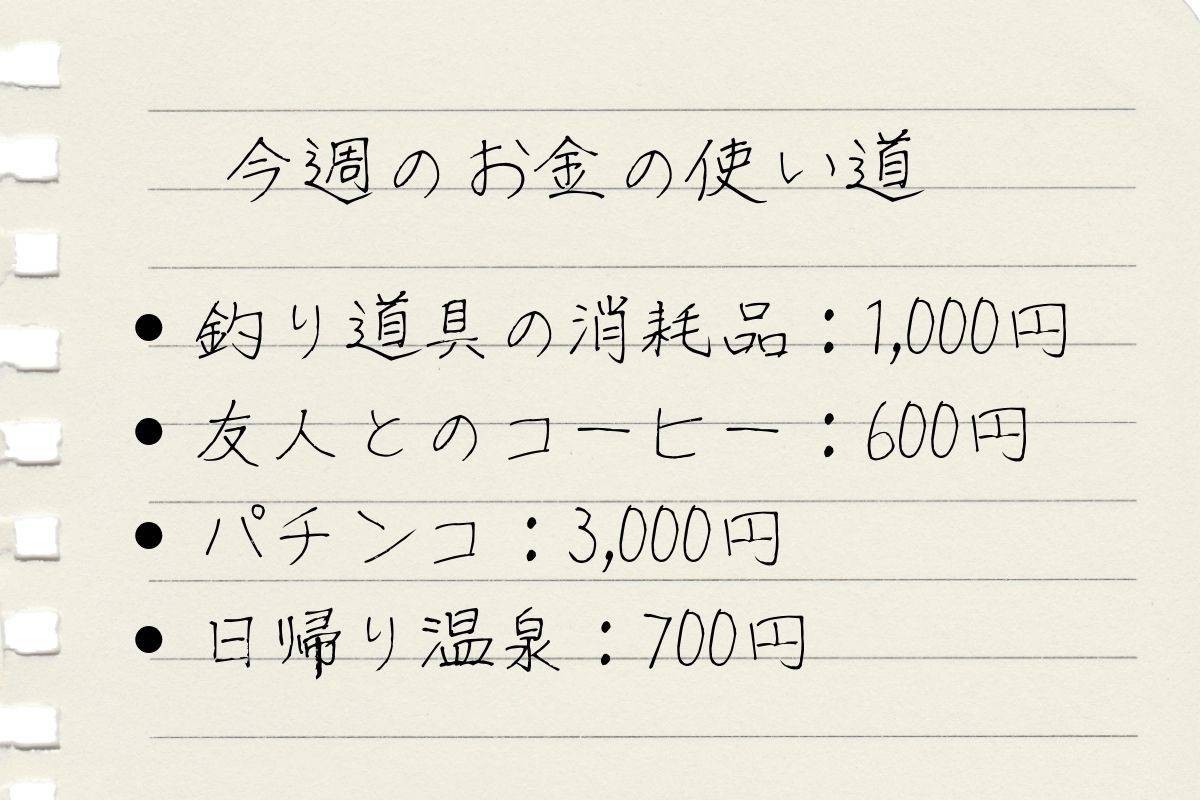 今週のお金の使い道
● 釣り道具の消耗品：1,000円
● 友人とのコーヒー：600円
● パチンコ：3,000円
● 日帰り温泉：700円